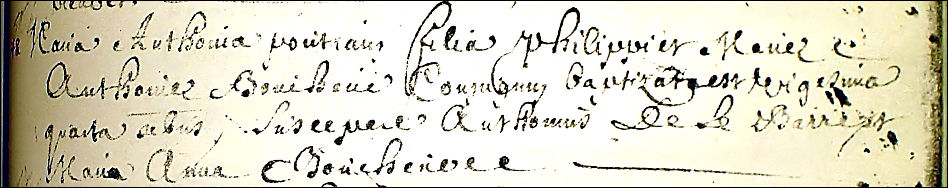 Maria Anthonia poitraux filia Philippi et Mariæ
Anthoniæ Boucheué Coniugum baptizata est vigesima
quarta suscepere Anthonius De Le Barre et
Maria Anna Boucheué